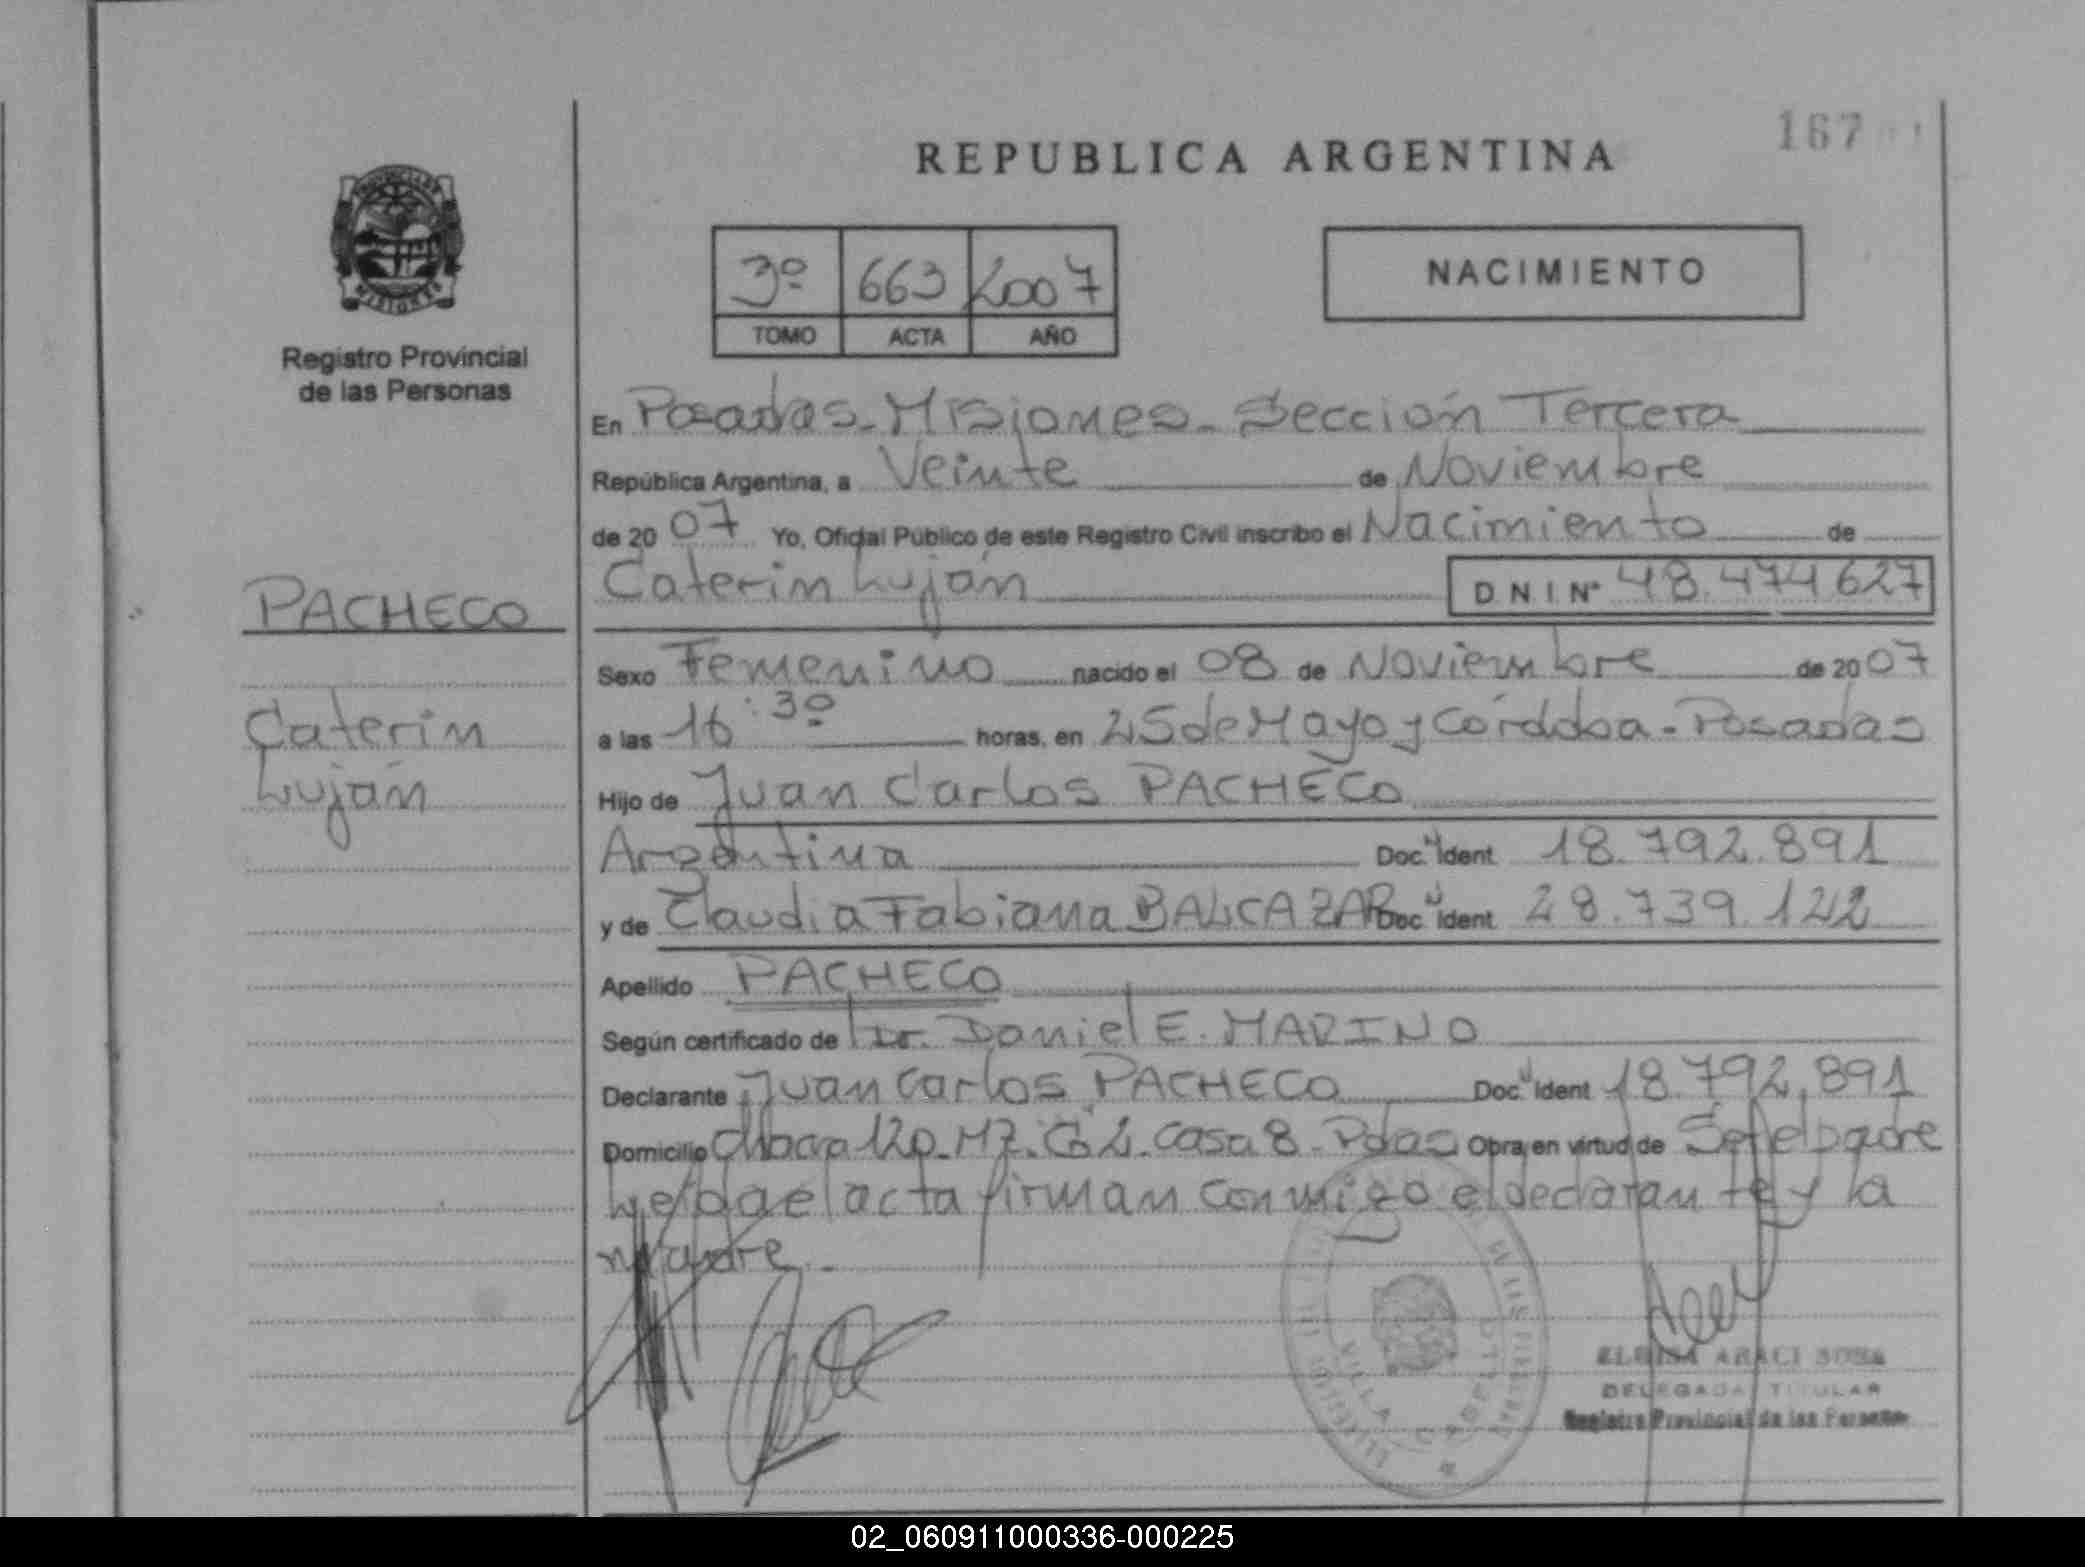 167
REPUBLICA ARGENTINA
PROVINCIA DE
MISIONES
Registro Provincial
de las Personas
3º 663 2007
TOMO ACTA AÑO
NACIMIENTO
En Posadas - Misiones - Sección Tercera
República Argentina, a Veinte de Noviembre
de 2007 Yo, Oficial Público de este Registro Civil inscribo el Nacimiento de
Caterin Luján D N I Nº 48.474627
PACHECO
Caterin
Luján
Sexo Femenino nacido el 08 de Noviembre de 2007
a las 16:30 horas, en 25 de Mayo y Córdoba - Posadas
Hijo de Juan Carlos PACHECO
Argentina Doc. Ident 18.792.891
y de Claudia Fabiana BALCAZAR Doc Ident 28.739.122
Apellido PACHECO
Según certificado de Dr. Daniel E. MARINO
Declarante Juan Carlos PACHECO Doc Ident 18.792.891
Domicilio Chacra 120. MZ. C2. Casa 8 - Pdas Obra en virtud de Ser el padre
leida el acta firman conmigo el declarante y la
madre.-
VILLA
ARACI SOSA
DELEGADA TITULAR
Registro Provincial de las Personas
02_060911000336-000225